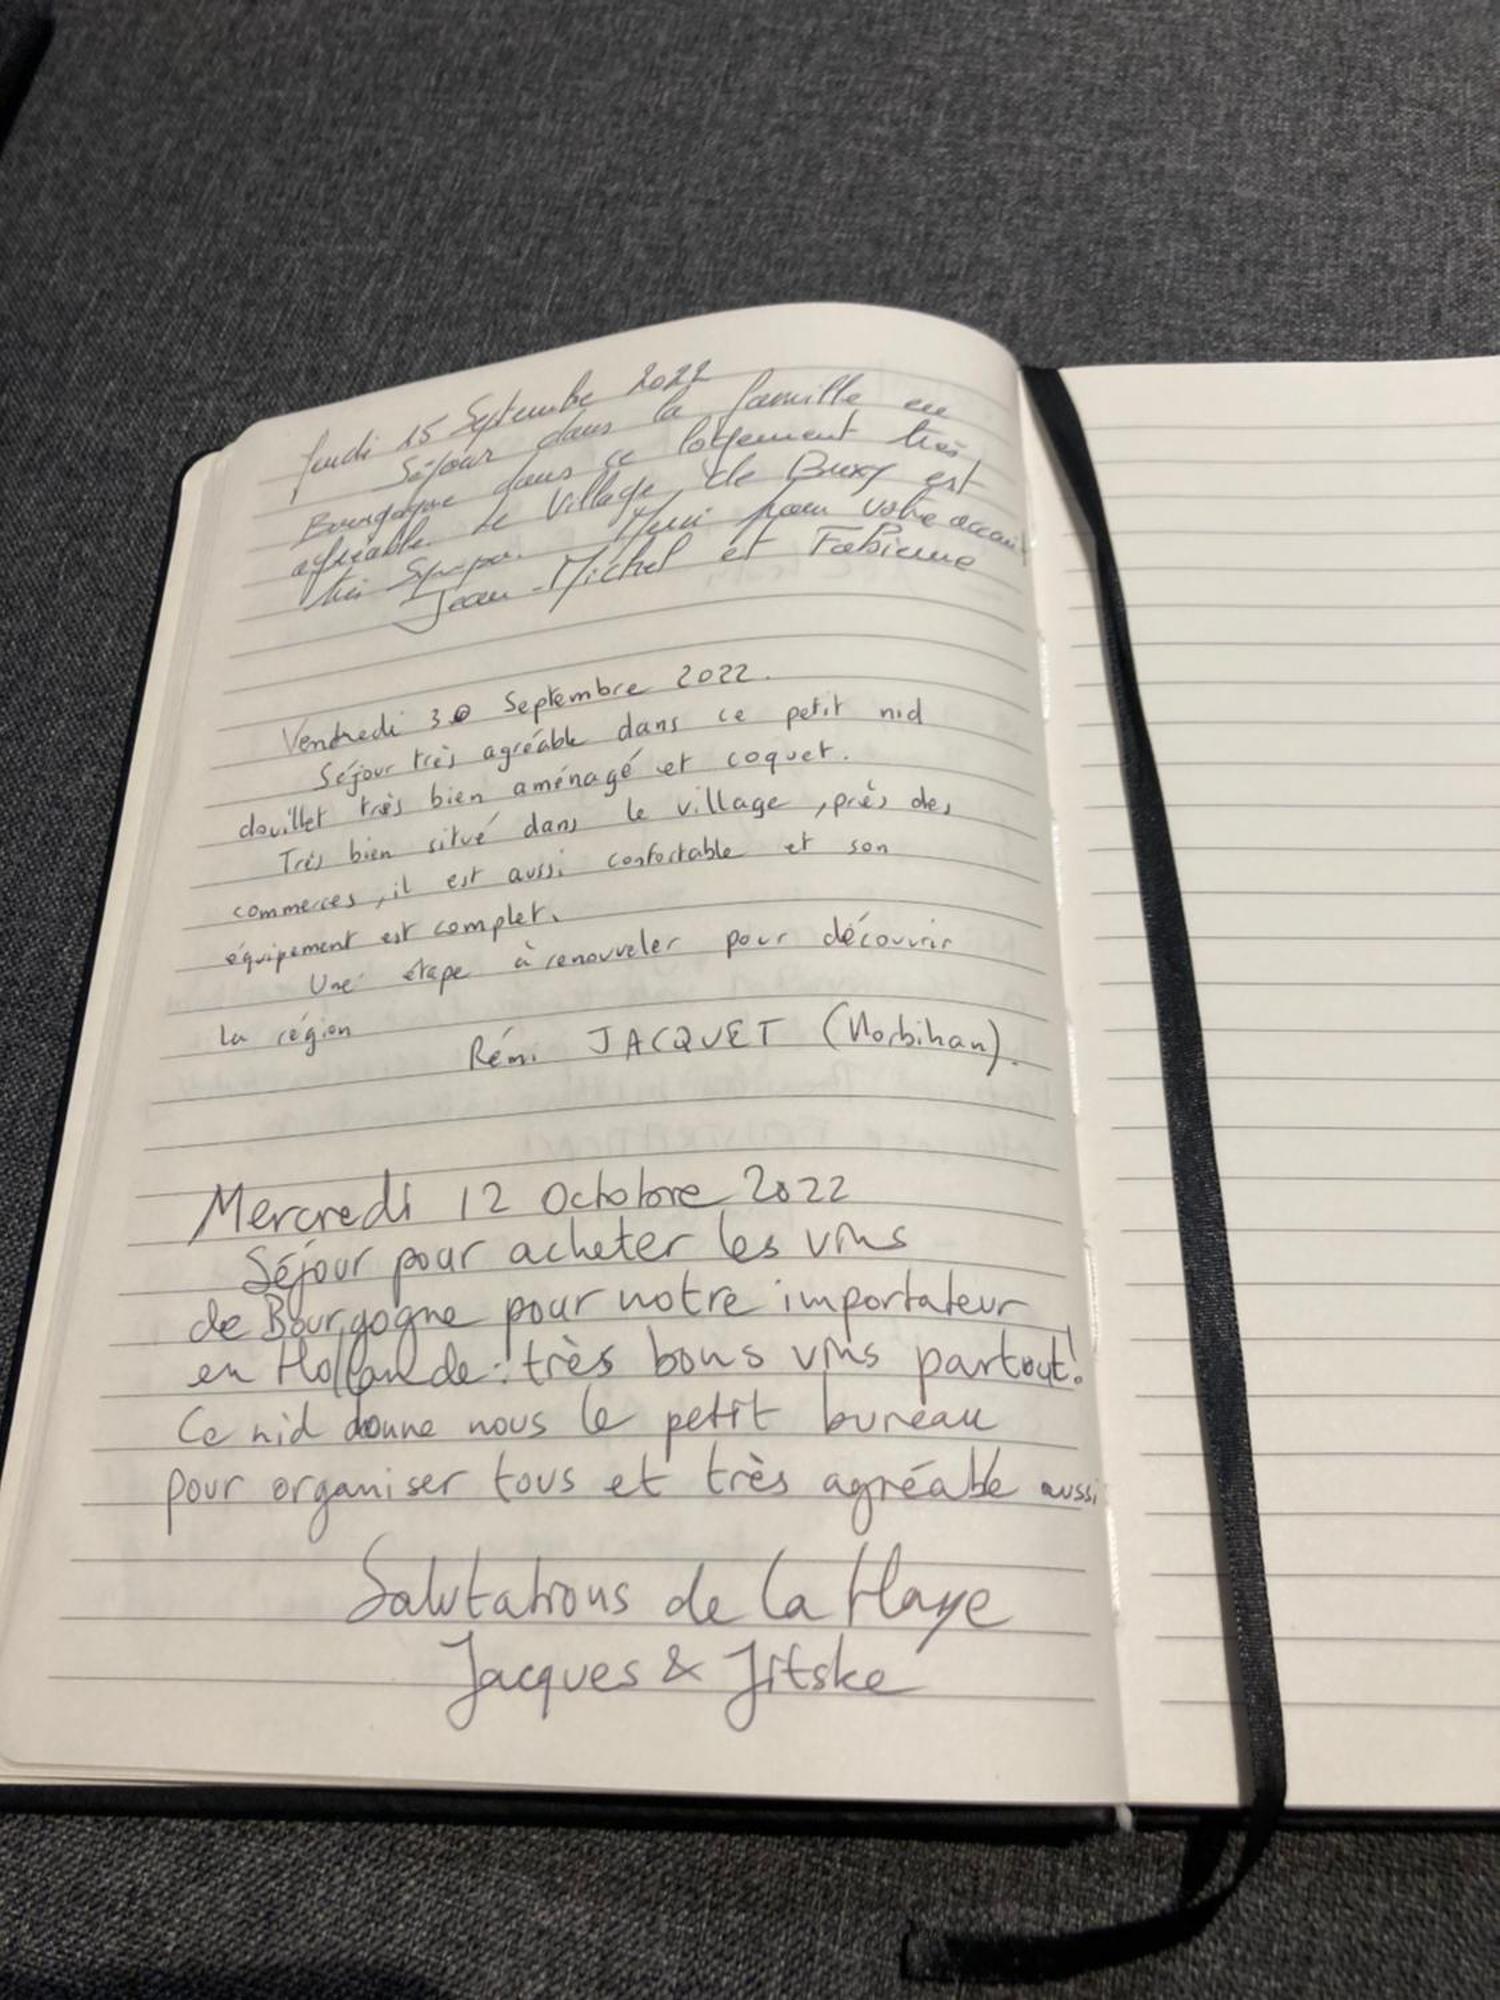 Jeudi 15 Septembre 2022
Séjour dans la famille en
Bourgogne dans ce logement très
agréable. Le Village de Buxy est
très Sympa. Merci pour votre accueil
Jean-Michel et Fabienne
Vendredi 30 Septembre 2022.
Séjour très agréable dans ce petit nid
douillet très bien aménagé et coquet.
Très bien situé dans le village, près des
commerces, il est aussi confortable et son
équipement est complet.
Une étape à renouveler pour découvrir
la région
Rémi JACQUET (Morbihan).
Mercredi 12 Octobre 2022
Séjour pour acheter les vins
de Bourgogne pour notre importateur
en Hollande: très bons vins partout!
Ce nid donne nous le petit bureau
pour organiser tous et très agréable aussi
Salutations de la Haye
Jacques & Jitske